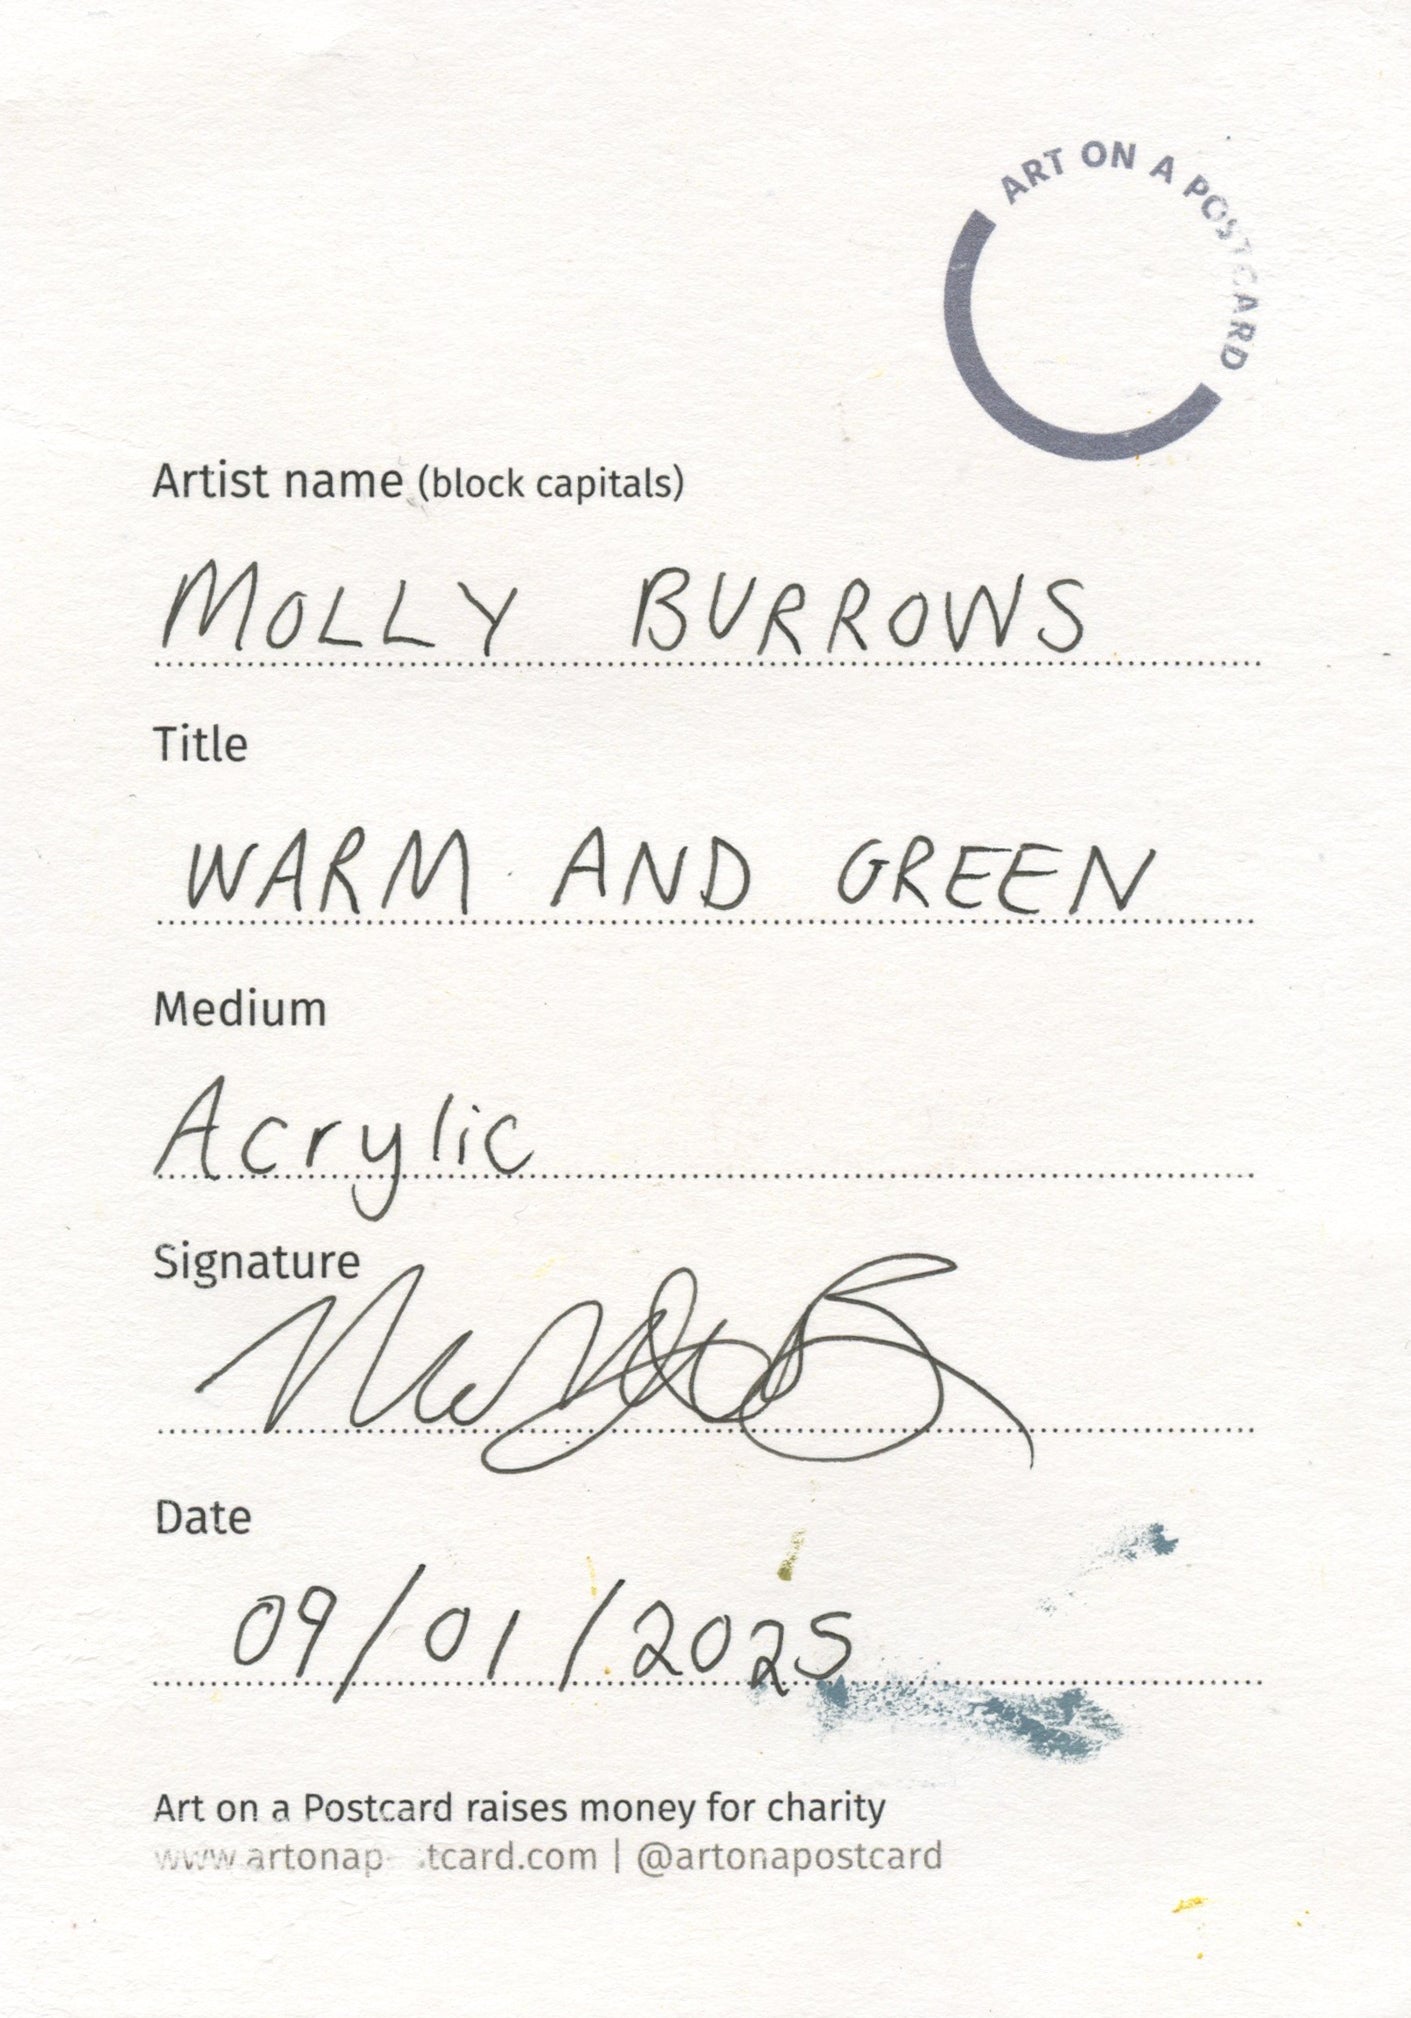 ART ON A POSTCARD
Artist name (block capitals)
MOLLY BURROWS
Title
WARM AND GREEN
Medium
Acrylic
Signature
Date
09/01/2025
Art on a Postcard raises money for charity
| @artonapostcard